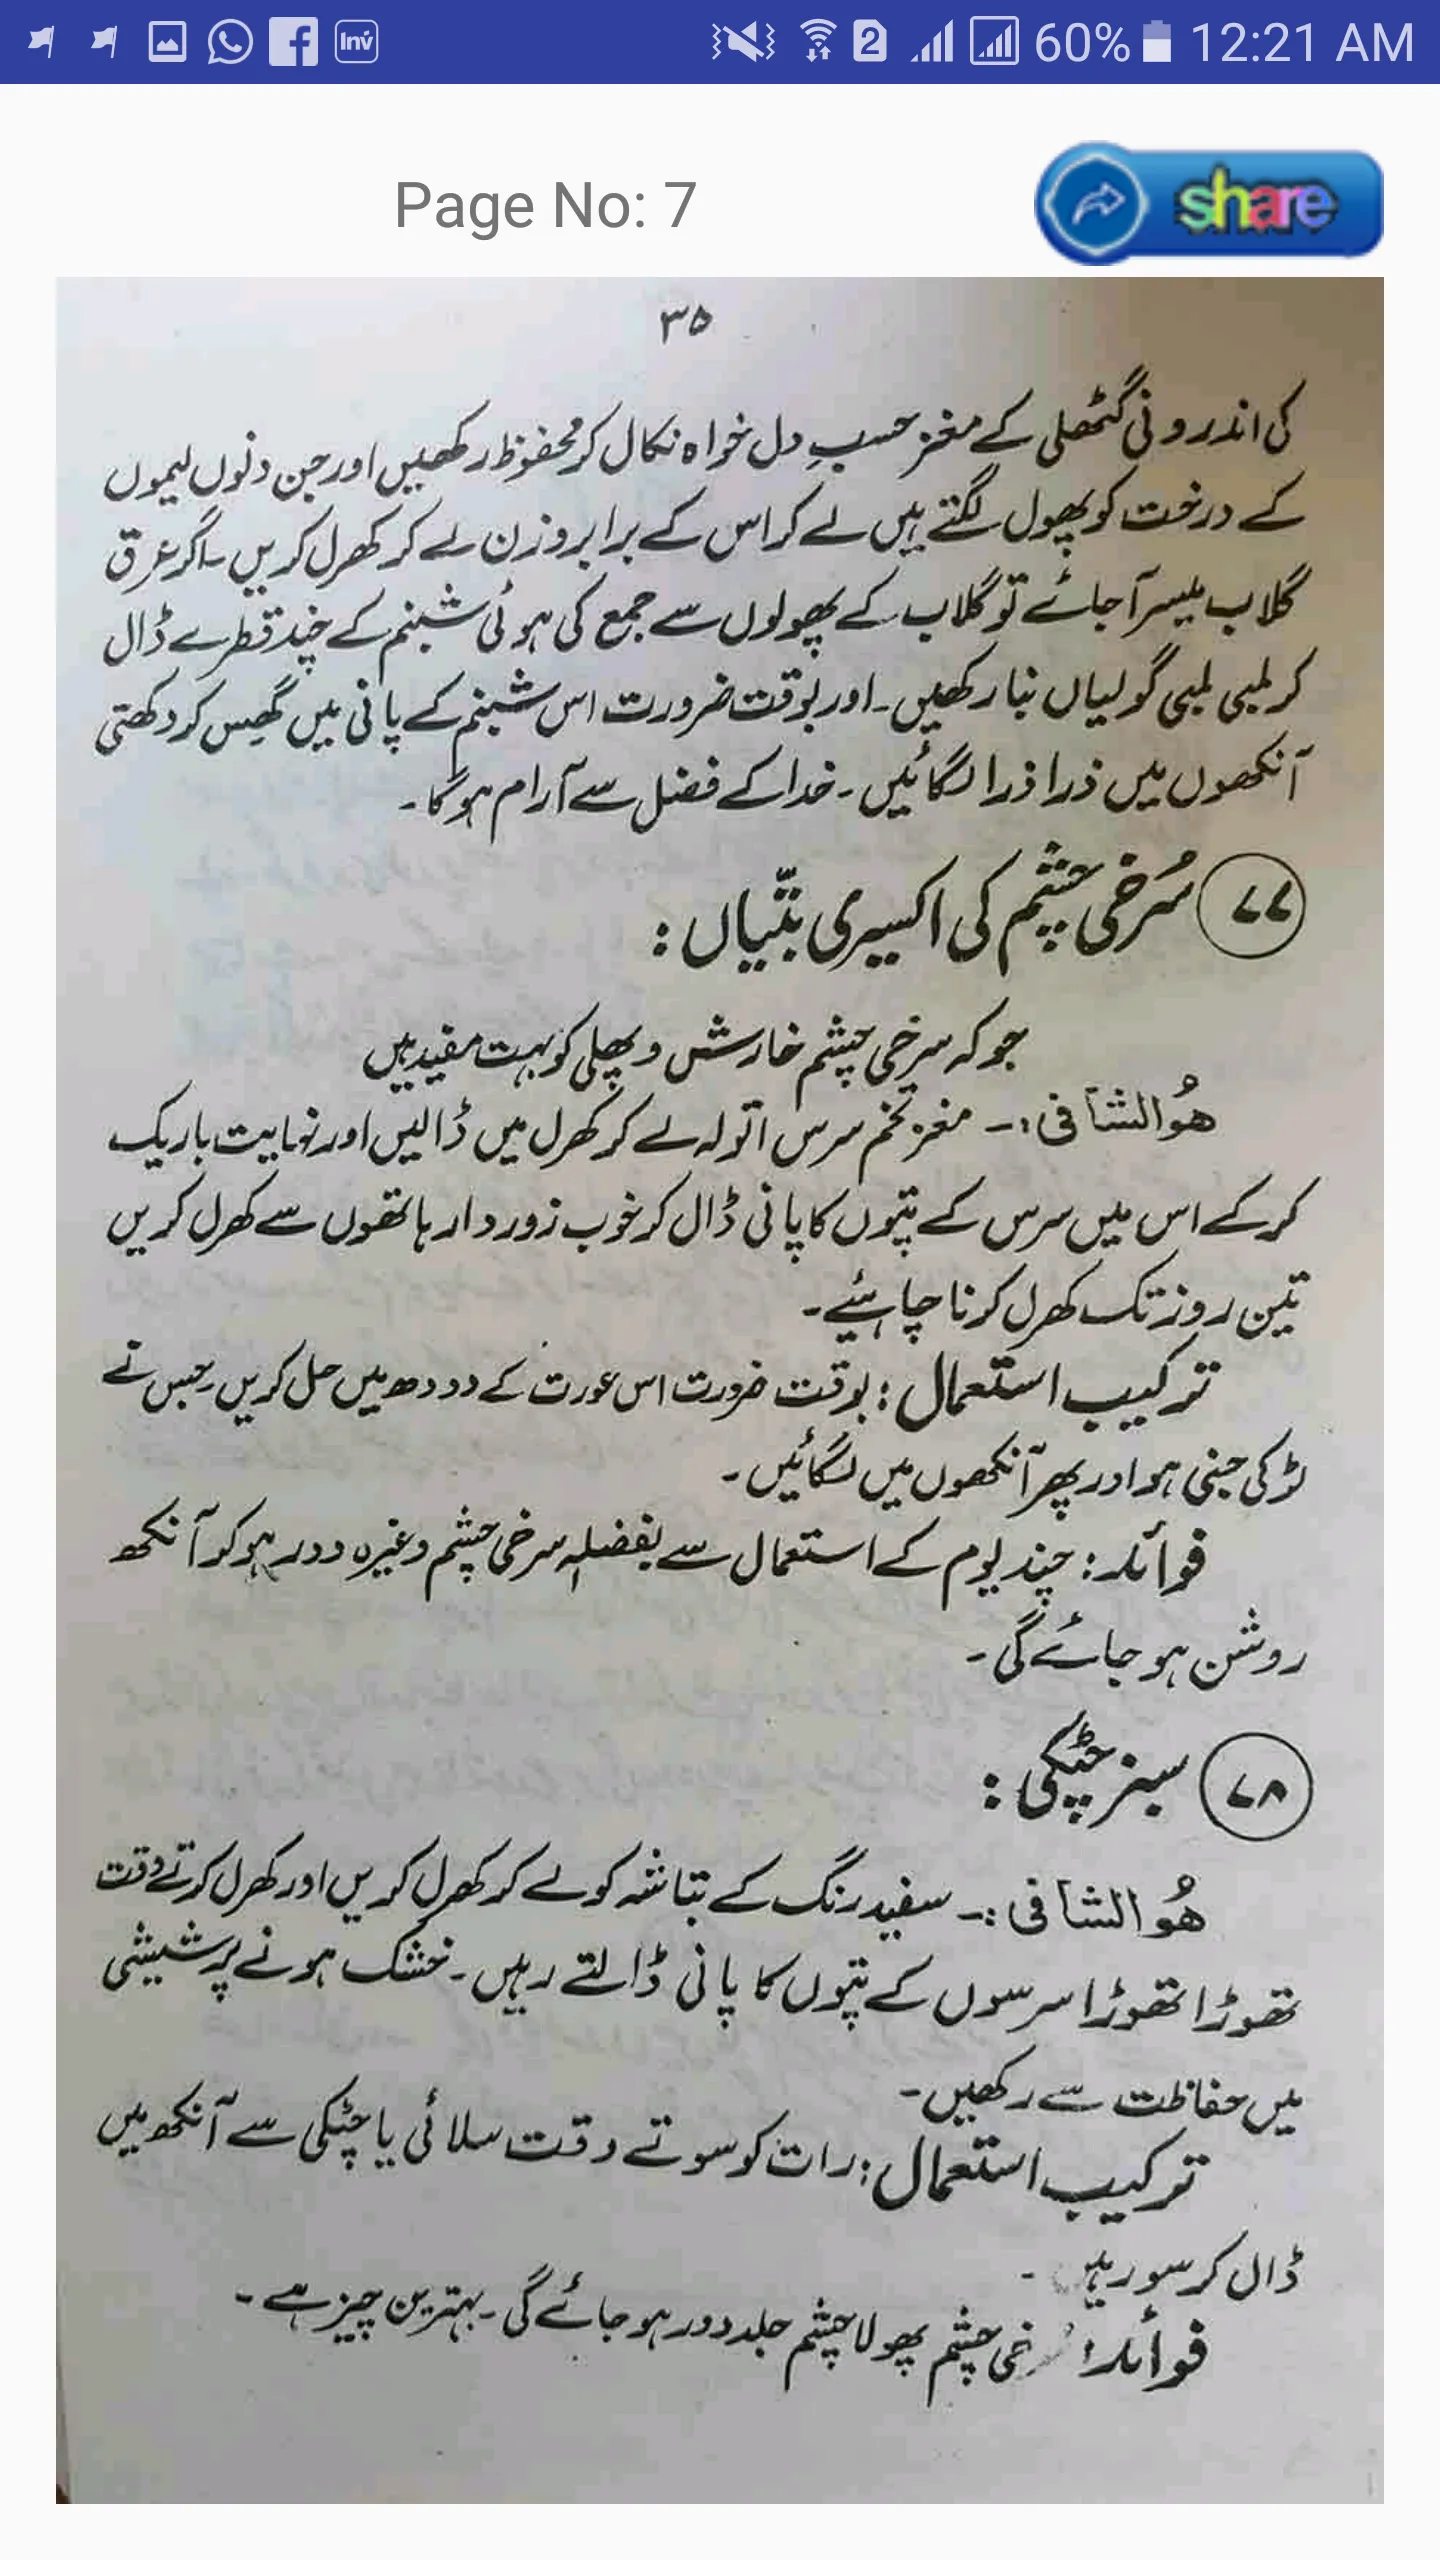 60% 12:21 AM
Page No: 7
share
۳۵
کی اندرونی گٹھلی کے مغز حسبِ دل خواہ نکال کر محفوظ رکھیں اور جن دنوں لیموں
کے درخت کو پھول لگتے ہیں لے کر اس کے برابر وزن لے کر کھرل کریں ۔ اگر عرق
گلاب میسر آ جائے تو گلاب کے پھولوں سے جمع کی ہوئی شبنم کے چند قطرے ڈال
کر لمبی لمبی گولیاں بنا رکھیں ۔ اور بوقت ضرورت اس شبنم کے پانی میں گھِس کر دکھتی
آنکھوں میں ذرا ذرا لگائیں ۔ خدا کے فضل سے آرام ہو گا ۔
۷۷ سُرخی چشم کی اکسیری بتّیاں :
جو کہ سرخی چشم خارش و پھلی کو بہت مفید ہیں
ھُوالشافی :۔ مغز تخم سرس ا تولہ لے کر کھرل میں ڈالیں اور نہایت باریک
کر کے اس میں سرس کے پتوں کا پانی ڈال کر خوب زور دار ہاتھوں سے کھرل کریں
تین روز تک کھرل کرنا چاہئیے ۔
ترکیب استعمال : بوقت ضرورت اس عورت کے دودھ میں حل کریں جس نے
لڑکی جنی ہو اور پھر آنکھوں میں لگائیں ۔
فوائد : چند یوم کے استعمال سے بفضلہٖ سرخی چشم وغیرہ دور ہو کر آنکھ
روشن ہو جائے گی ۔
۷۸ سبز چٹکی :
ھُوالشافی :۔ سفید رنگ کے بتاشہ کو لے کر کھرل کریں اور کھرل کرتے وقت
تھوڑا تھوڑا سرسوں کے پتوں کا پانی ڈالتے رہیں ۔ خشک ہونے پر شیشی
میں حفاظت سے رکھیں ۔
ترکیب استعمال : رات کو سوتے وقت سلائی یا چٹکی سے آنکھ میں
ڈال کر سو رہیں ۔
فوائد : سُرخی چشم پھولا چشم جلد دور ہو جائے گی ۔ بہترین چیز ہے ۔